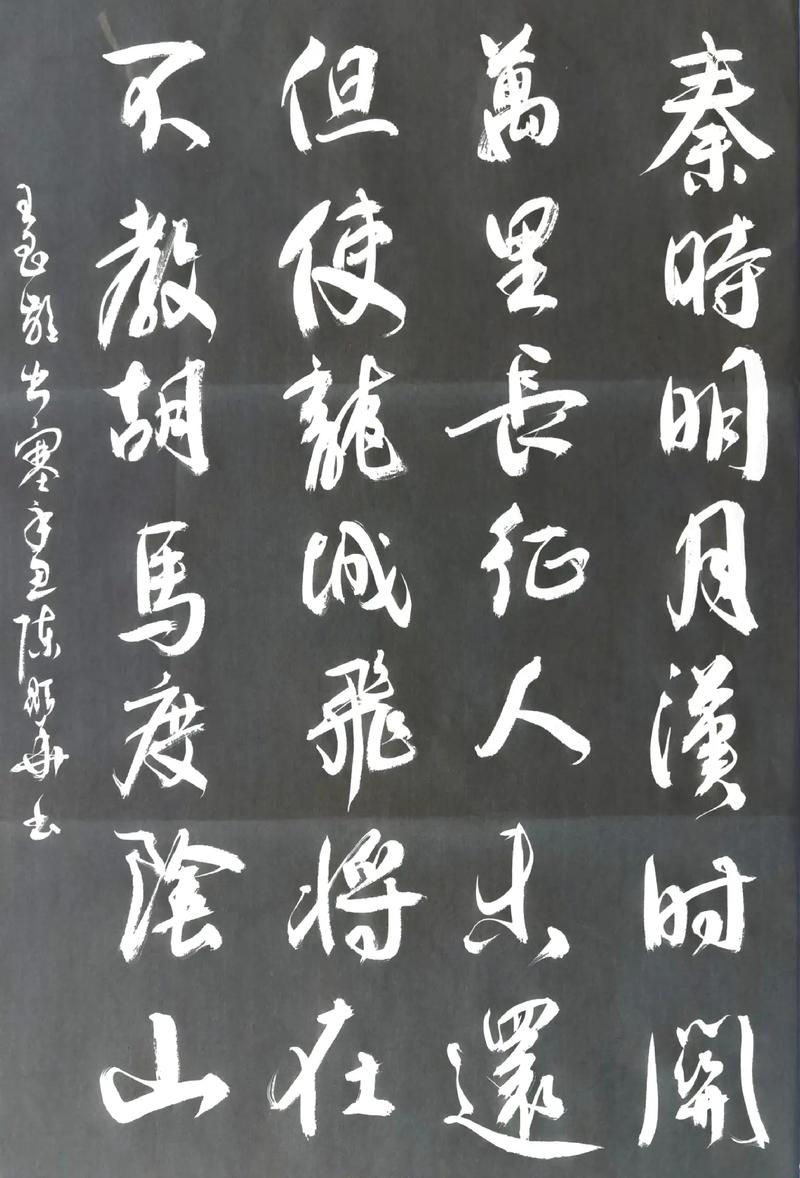 秦時明月漢时関
萬里長征人未還
但使龍城飛将在
不教胡馬度陰山
王昌齡出塞辛丑陈彤華书